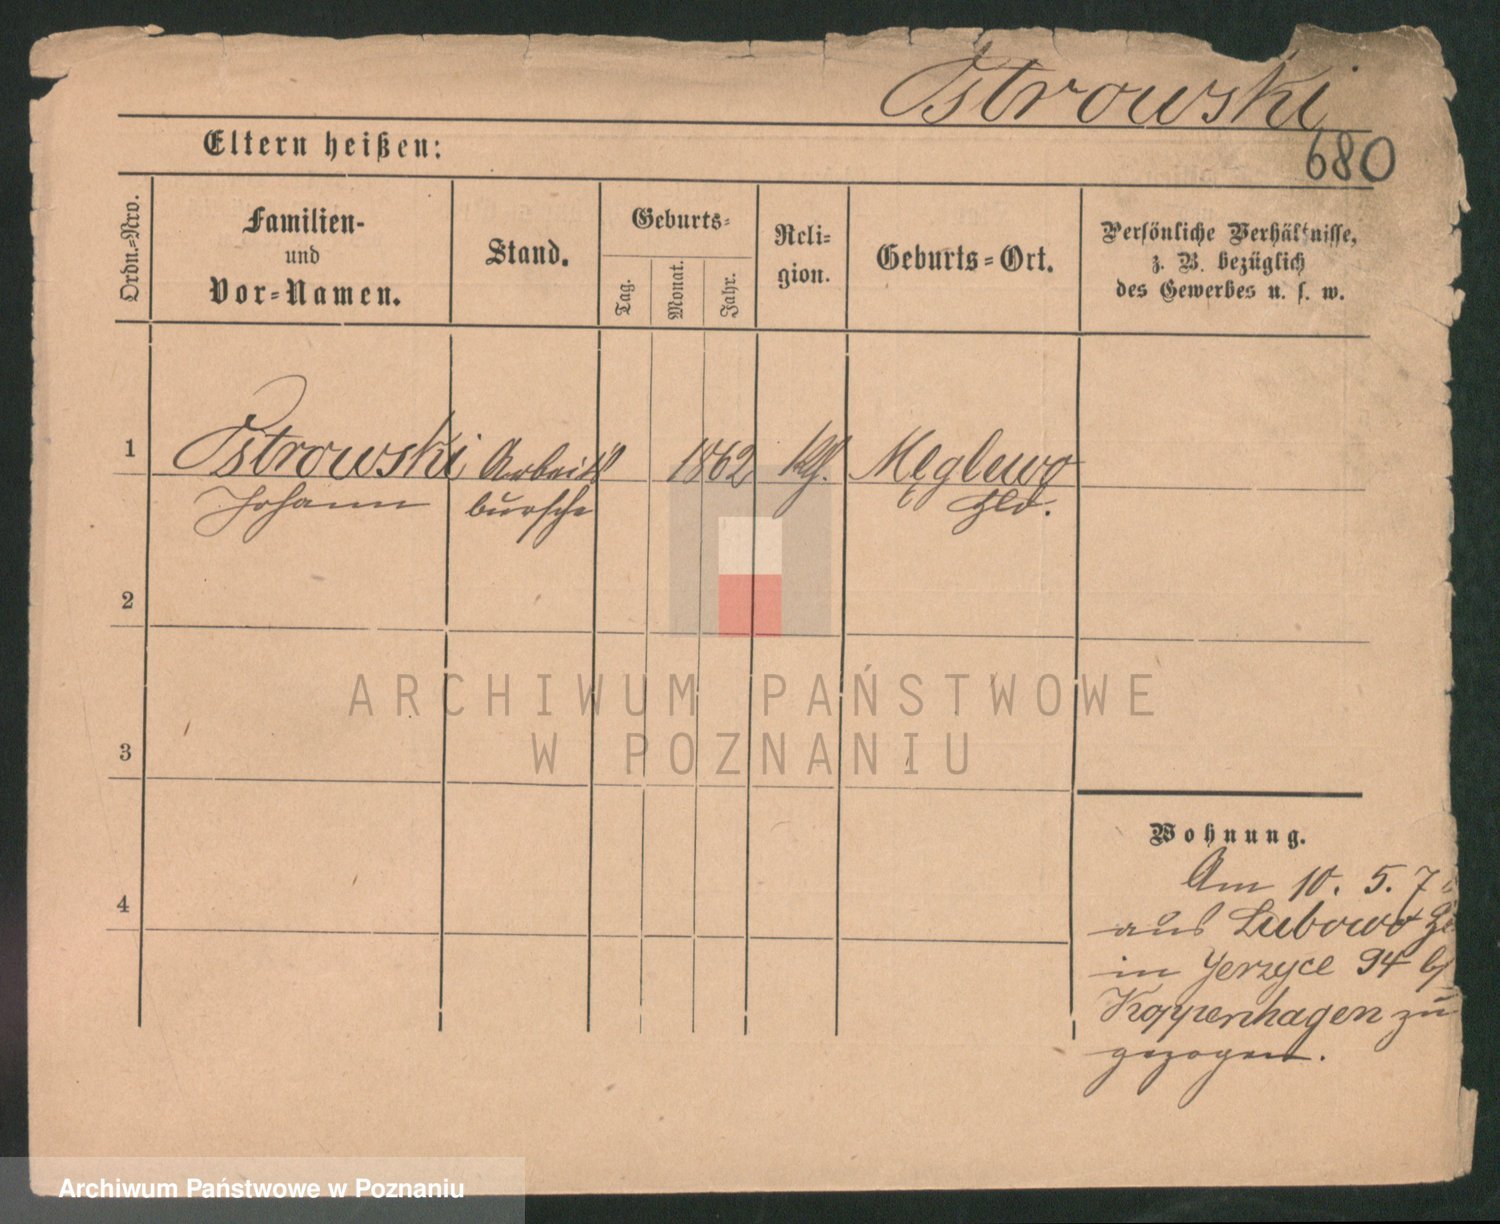 Ostrowski
680
Eltern heißen:
Ordn.-Nro.
Familien-
und
Vor-Namen.
Stand.
Geburts-
Tag.
Monat.
Jahr.
Reli-
gion.
Geburts-Ort.
Persönliche Verhältnisse,
z. B. bezüglich
des Gewerbes u. s. w.
1
Ostrowski Arbeits 1862 Kth. Męglewo
Johann bursche
2
3
4
Wohnung.
Am 10. 5. 7
aus Lubowo
in Jerzyce 94
Koppenhagen zu
gezogen.
ARCHIWUM PAŃSTWOWE
W POZNANIU
Archiwum Państwowe w Poznaniu